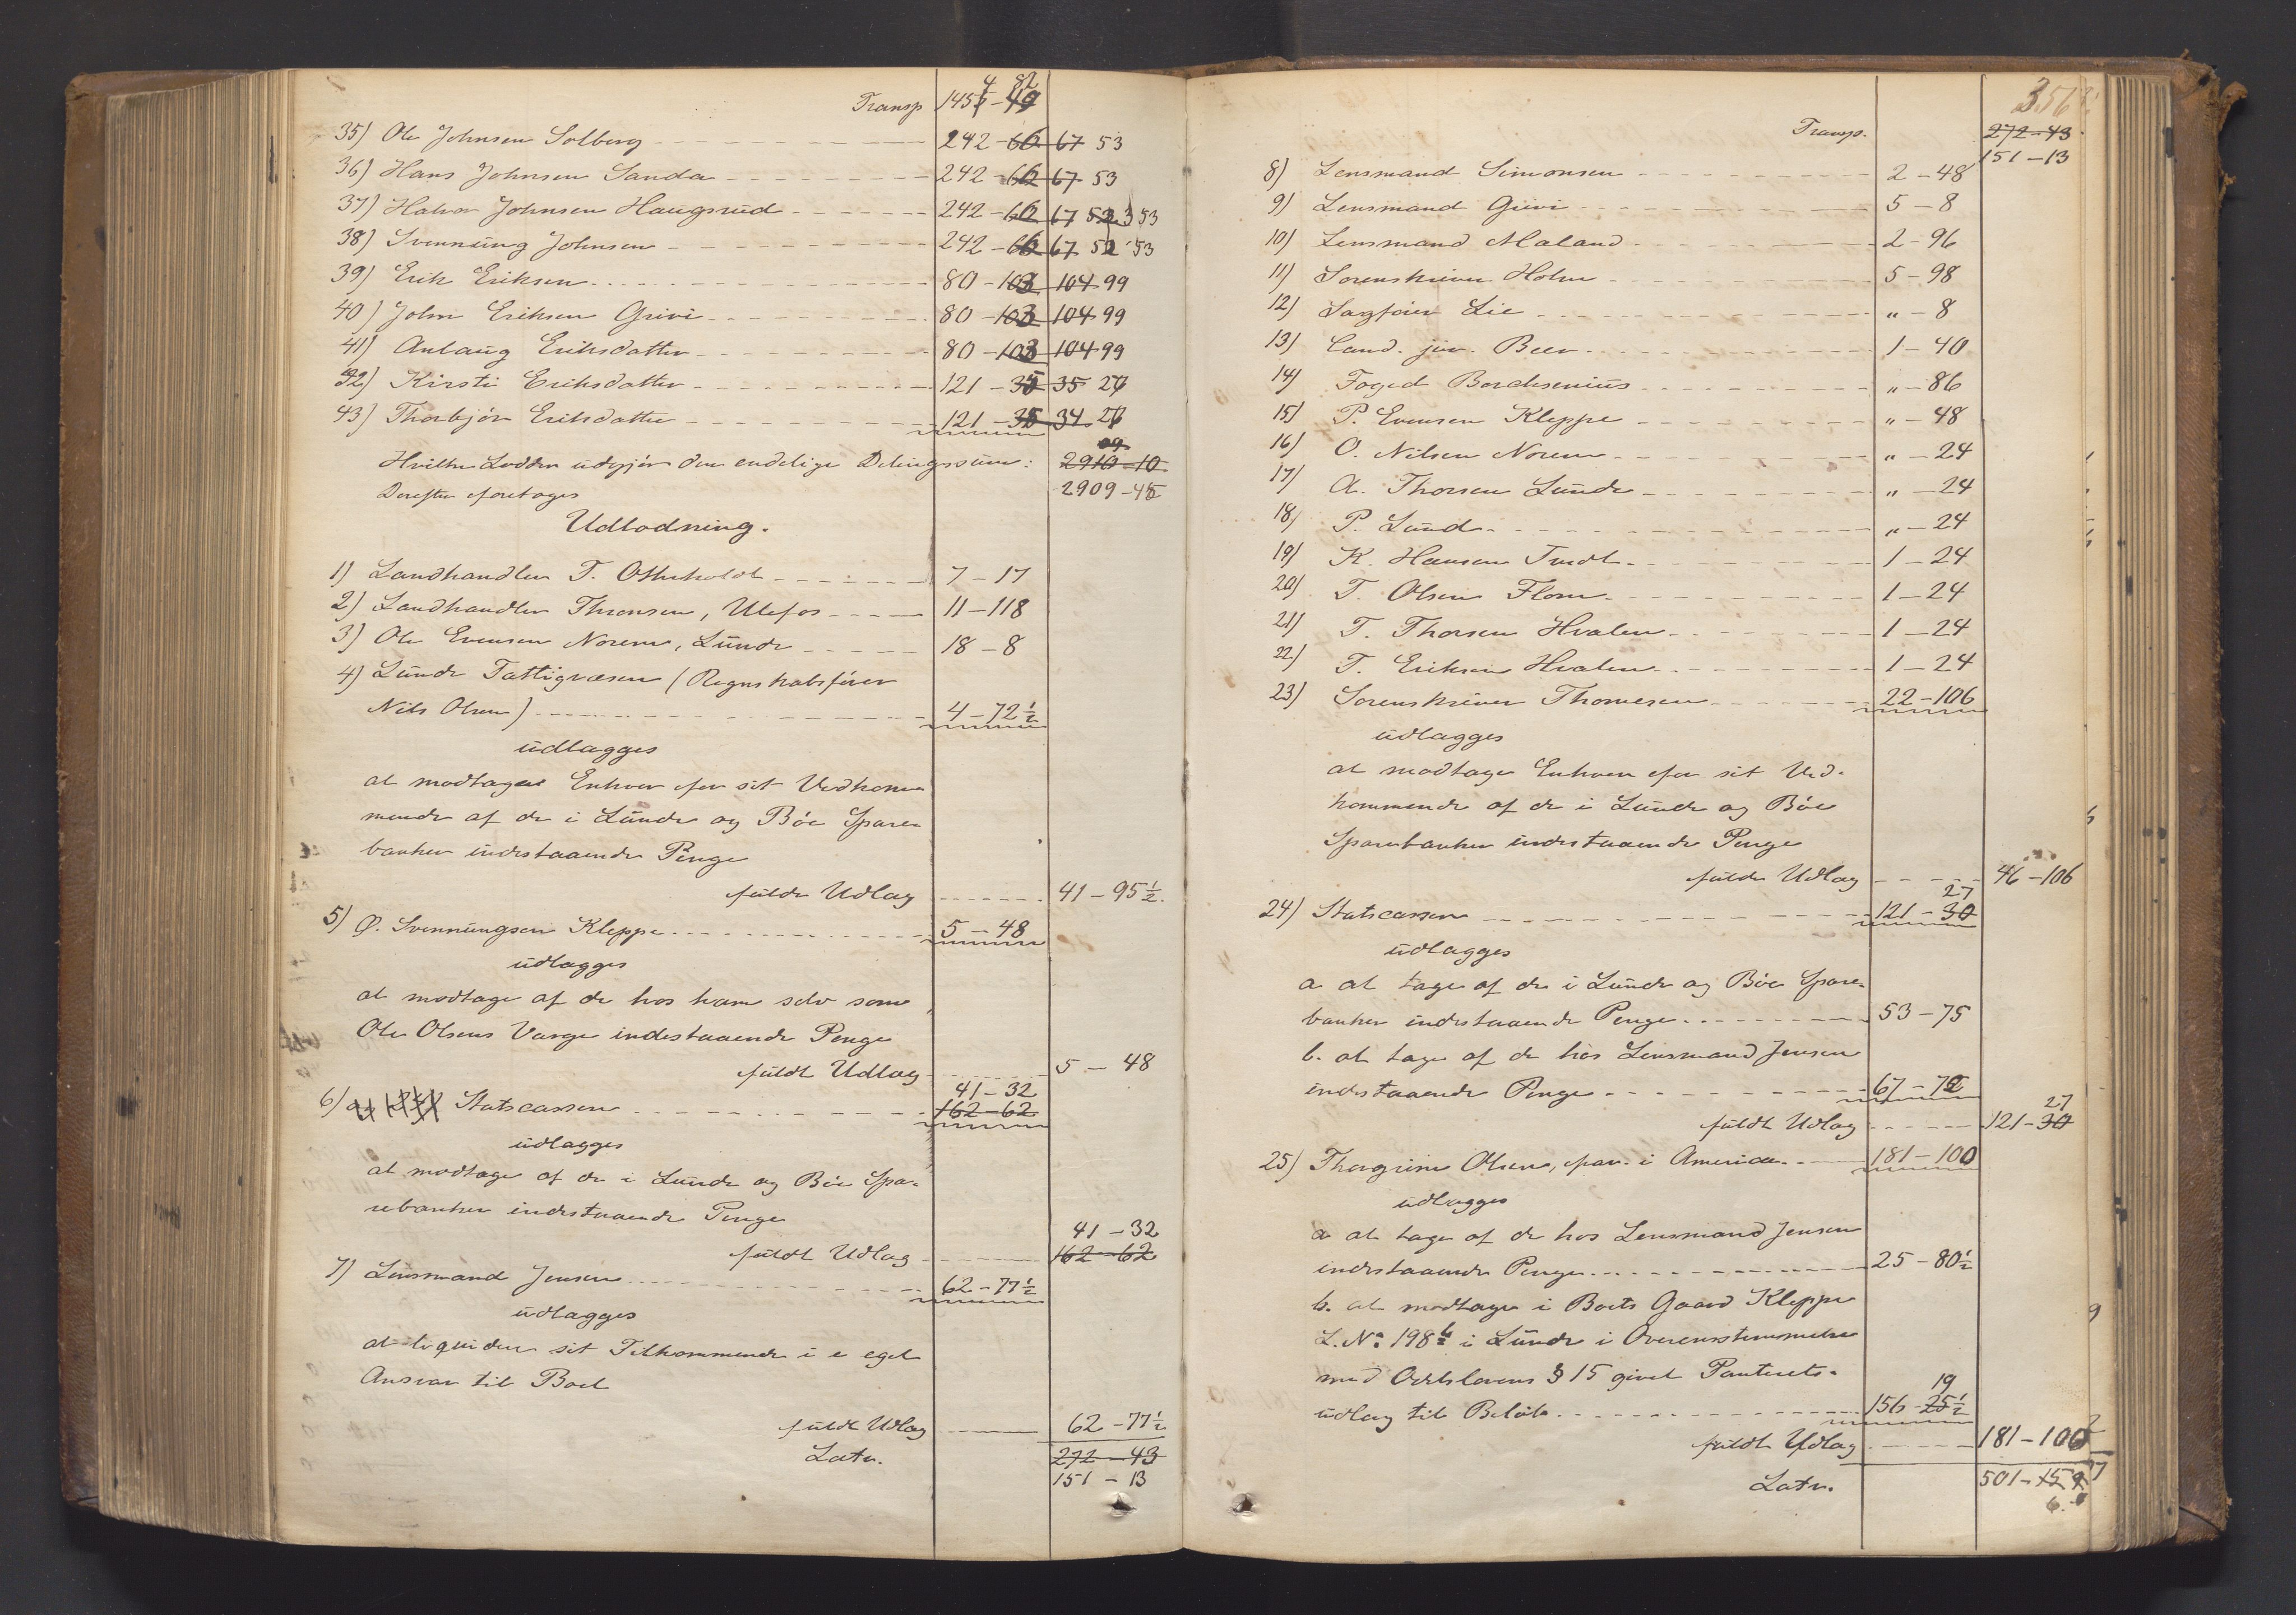 Transp 1454 - 82
35) Ole Johnsen Solberg 242 - 66 67 53
36) Hans Johnsen Sanda 242 - 66 67 53
37) Halvor Johnsen Haugsrud 242 - 66 67 53
38) Svennung Johnsen 242 - 66 67 52 53
39) Erik Eriksen 80 - 103 104 99
40) John Eriksen Grivi 80 - 103 104 99
41) Anlaug Eriksdatter 80 - 103 104 99
42) Kirsti Eriksdatter 121 - 35 35 27
43) Thorbjør Eriksdatter 121 - 35 34 27
Hvilke Lodder udgjør den endelige Delingssum: 2910 - 10
Derefter foretages 2909 - 45
Udlodning.
1) Landhandler T. Otterholdt 7 - 17
2) Landhandler Thronsen, Ulefos 11 - 118
3) Ole Evensen Norem, Lunde 18 - 8
4) Lunde Fattigvæsen (Regnskabsfører
Nils Olsen) 4 - 72 1/2
udlægges
at modtage Enhver for sit Vedkom-
mende af de i Lunde og Bøe Spare-
banker indestaaende Penge
fulde Udlæg 41 - 95 1/2.
5) Ø. Svennungsen Kleppe 5 - 48
udlægges
at modtage af de hos ham selv som
Ole Olsens Værge indestaaende Penge
fuldt Udlæg 5 - 48
41 - 32
6) Statscassen 162 - 62
udlægges
at modtage af de i Lunde og Bøe Spa-
rebanker indestaaende Penge
41 - 32
fuldt Udlæg 162 - 62
7) Lensmand Jensen 62 - 77 1/2
udlægges
at liquidere sit Tilkommende i e eget
Ansvar til Boet
fuldt Udlæg 62 - 77 1/2
Latr. 272 - 43
151 - 13
356
Transp. 272 - 43
151 - 13
8) Lensmand Simonsen 2 - 48
9) Lensmand Grivi 5 - 8
10) Lensmand Maland 2 - 96
11) Sorenskriver Holm 5 - 98
12) Sagfører Lie " - 8
13) Cand. jur. Beer 1 - 40
14) Foged Borchsenius " - 86
15) P. Evensen Kleppe " - 48
16) O. Nilsen Norem " - 24
17) A. Thorsen Lunde " - 24
18) P. Lund " - 24
19) K. Hansen Tvedt 1 - 24
20) T. Olsen Flom 1 - 24
21) T. Thorsen Hvalen 1 - 24
22) T. Eriksen Hvalen 1 - 24
23) Sorenskriver Thomesen 22 - 106
udlægges
at modtage Enhver for sit Ved-
kommende af de i Lunde og Bøe
Sparebanker indestaaende Penge
fulde Udlæg 46 - 106
27
24) Statscassen 121 - 30
udlægges
a at tage af de i Lunde og Bøe Spare-
banker indestaaende Penge 53 - 75
b. at tage af de hos Lensmand Jensen
indestaaende Penge 67 - 72
27
fuldt Udlæg 121 - 30
25) Thorgrim Olsen, frav. i America 181 - 100
udlægges
a at tage af de hos Lensmand Jensen
indestaaende Penge 25 - 80 1/2
b. at modtage i Boets Gaard Kleppe
L. No 198 b i Lunde i Overensstemmelse
med Odelslovens § 15 givet Panterets-
19
udlæg til Beløb 156 - 25 1/2
fuldt Udlæg 181 - 100
Latr. 501 -